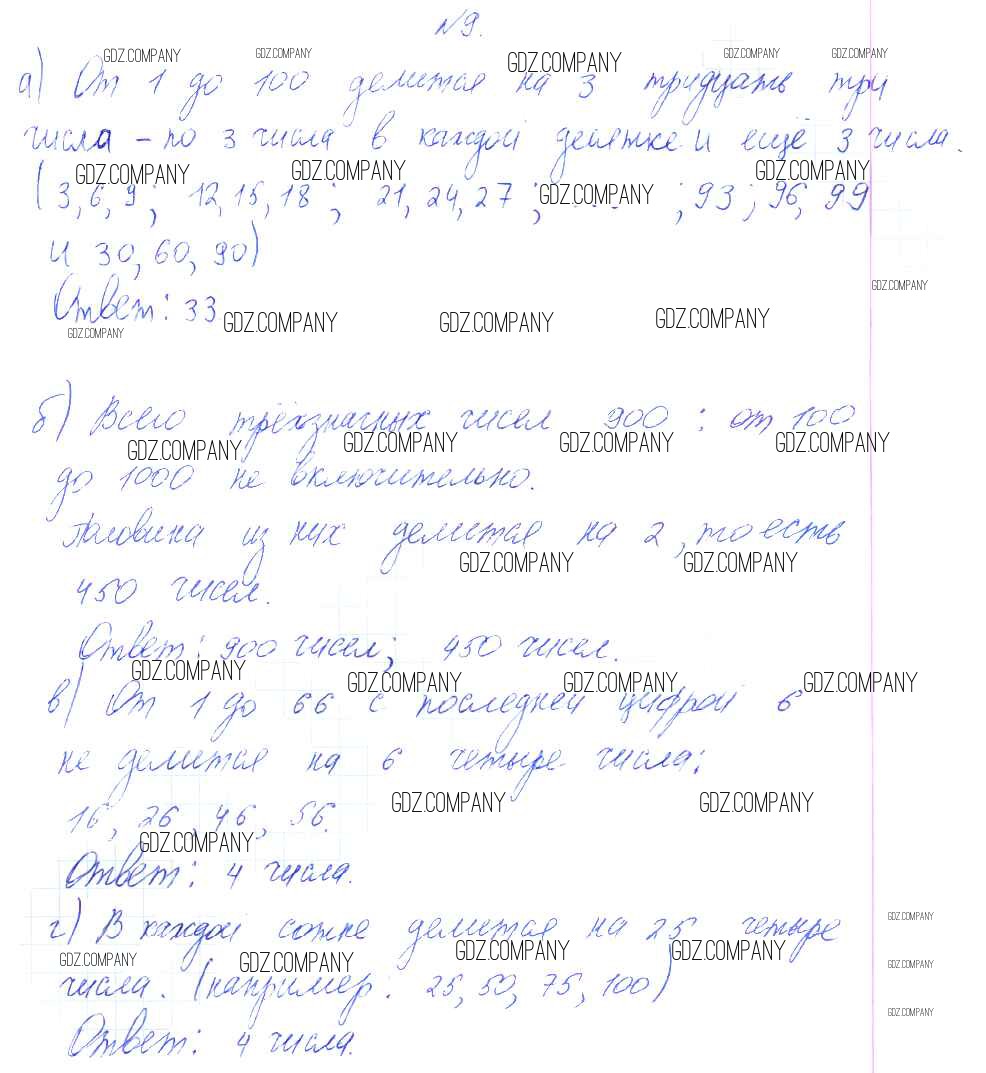 №9.
GDZ.COMPANY GDZ.COMPANY GDZ.COMPANY GDZ.COMPANY GDZ.COMPANY
а) От 1 до 100 делится на 3 тридцать три
числа – по 3 числа в каждой десятке и ещё 3 числа.
GDZ.COMPANY GDZ.COMPANY GDZ.COMPANY GDZ.COMPANY
(3, 6, 9; 12, 15, 18; 21, 24, 27; ....; 93; 96, 99
и 30, 60, 90)
GDZ.COMPANY
Ответ: 33
GDZ.COMPANY GDZ.COMPANY GDZ.COMPANY GDZ.COMPANY
б) Всего трёхзначных чисел 900 : от 100
GDZ.COMPANY GDZ.COMPANY GDZ.COMPANY GDZ.COMPANY
до 1000 не включительно.
Половина из них делится на 2, то есть
GDZ.COMPANY GDZ.COMPANY
450 чисел.
Ответ: 900 чисел; 450 чисел.
GDZ.COMPANY GDZ.COMPANY GDZ.COMPANY GDZ.COMPANY
в) От 1 до 66 с последней цифрой 6
не делится на 6 четыре числа:
GDZ.COMPANY GDZ.COMPANY
16, 26, 46, 56.
GDZ.COMPANY
Ответ: 4 числа.
GDZ.COMPANY
г) В каждой сотне делится на 25 четыре
GDZ.COMPANY GDZ.COMPANY GDZ.COMPANY GDZ.COMPANY GDZ.COMPANY
числа. (например: 25, 50, 75, 100)
GDZ.COMPANY
Ответ: 4 числа.